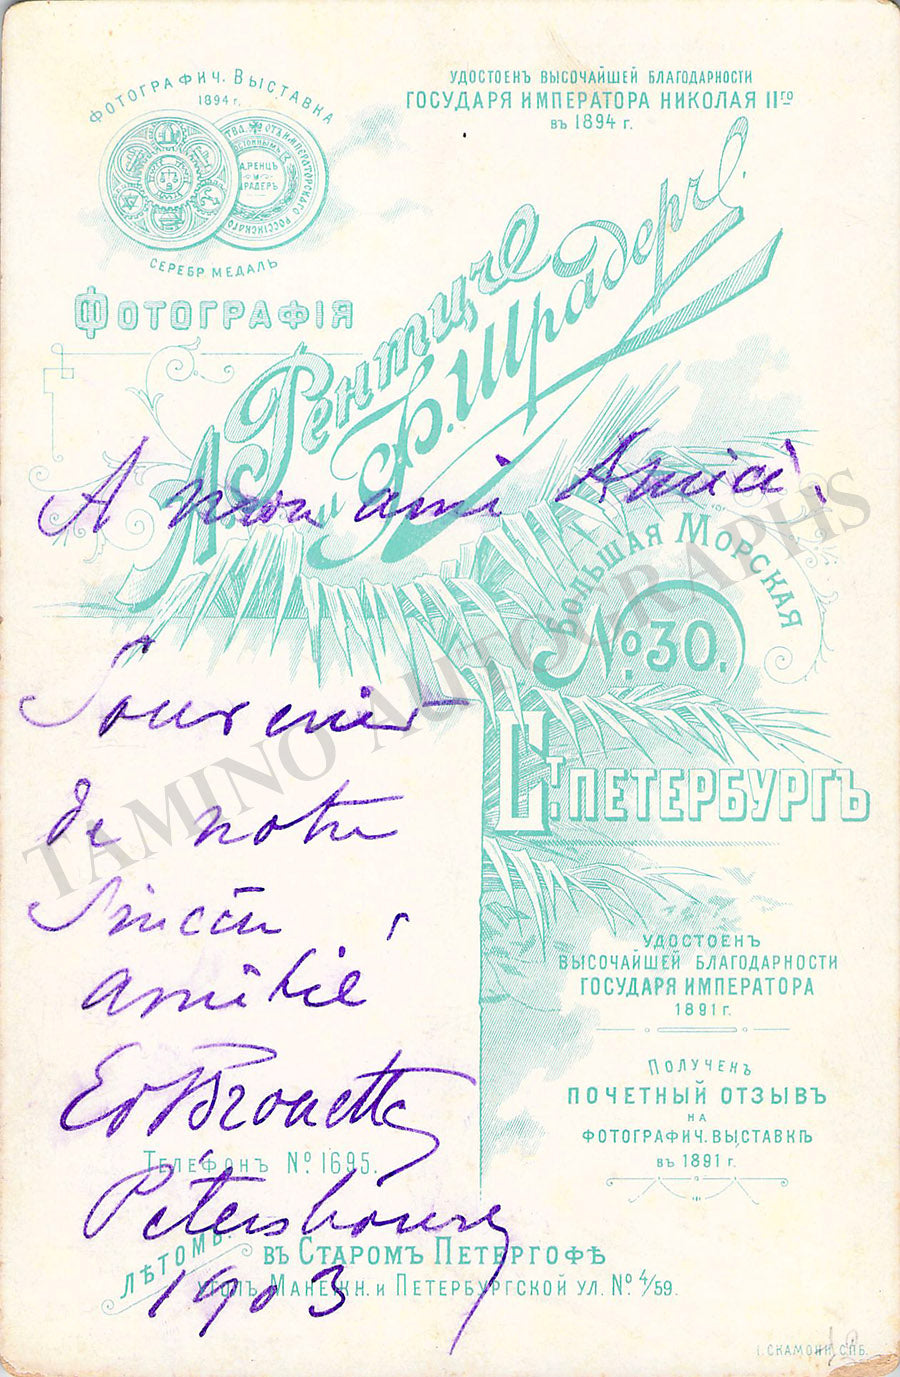 ФОТОГРАФИЧ. ВЫСТАВКА
1894 г.
УДОСТОЕНЪ ВЫСОЧАЙШЕЙ БЛАГОДАРНОСТИ
ГОСУДАРЯ ИМПЕРАТОРА НИКОЛАЯ IIГО
ВЪ 1894 г.
А.РЕНЦЪ
И
РАДЕРЪ
СЕРЕБР МЕДАЛЬ
ФОТОГРАФІЯ
А. Рентцъ
и Ф. Шрадеръ.
A mon ami Amici.
БОЛЬШАЯ МОРСКАЯ
№ 30.
Souvenir
de notre
sincère
amitié
Ed Brouette
Pétersbourg
1903
СТ. ПЕТЕРБУРГЪ
УДОСТОЕНЪ
ВЫСОЧАЙШЕЙ БЛАГОДАРНОСТИ
ГОСУДАРЯ ИМПЕРАТОРА
1891 г.
ПОЛУЧЕНЪ
ПОЧЕТНЫЙ ОТЗЫВЪ
НА
ФОТОГРАФИЧ. ВЫСТАВКѢ
ВЪ 1891 г.
ТЕЛЕФОНЪ № 1695.
ЛѢТОМЪ:
ВЪ СТАРОМЪ ПЕТЕРГОФѢ
УГОЛЪ МАНЕЖН. И ПЕТЕРБУРГСКОЙ УЛ. № 4/59.
І. СКАМОНИ, СПБ.
TAMINO AUTOGRAPHS